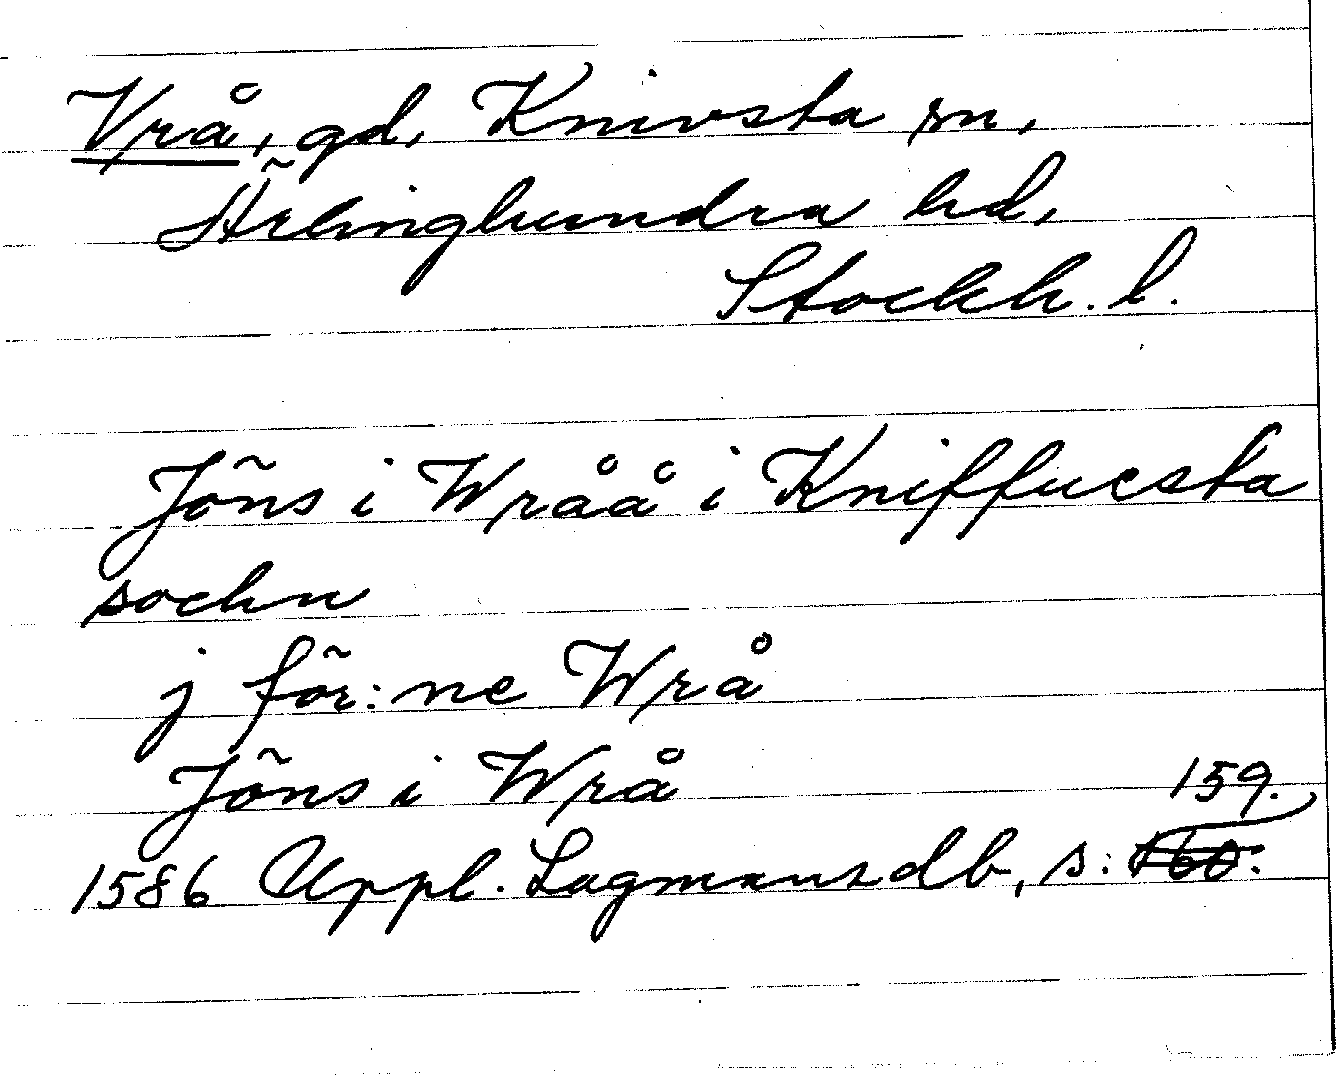 Vrå, gd, Knivsta sn,
Ärlinghundra hd,
Stockh. l.
Jöns i Wråå i Kniffuesta
sochn
j för:ne Wrå
Jöns i Wrå
159.
1586 Uppl. Lagmansdb, s: 160.